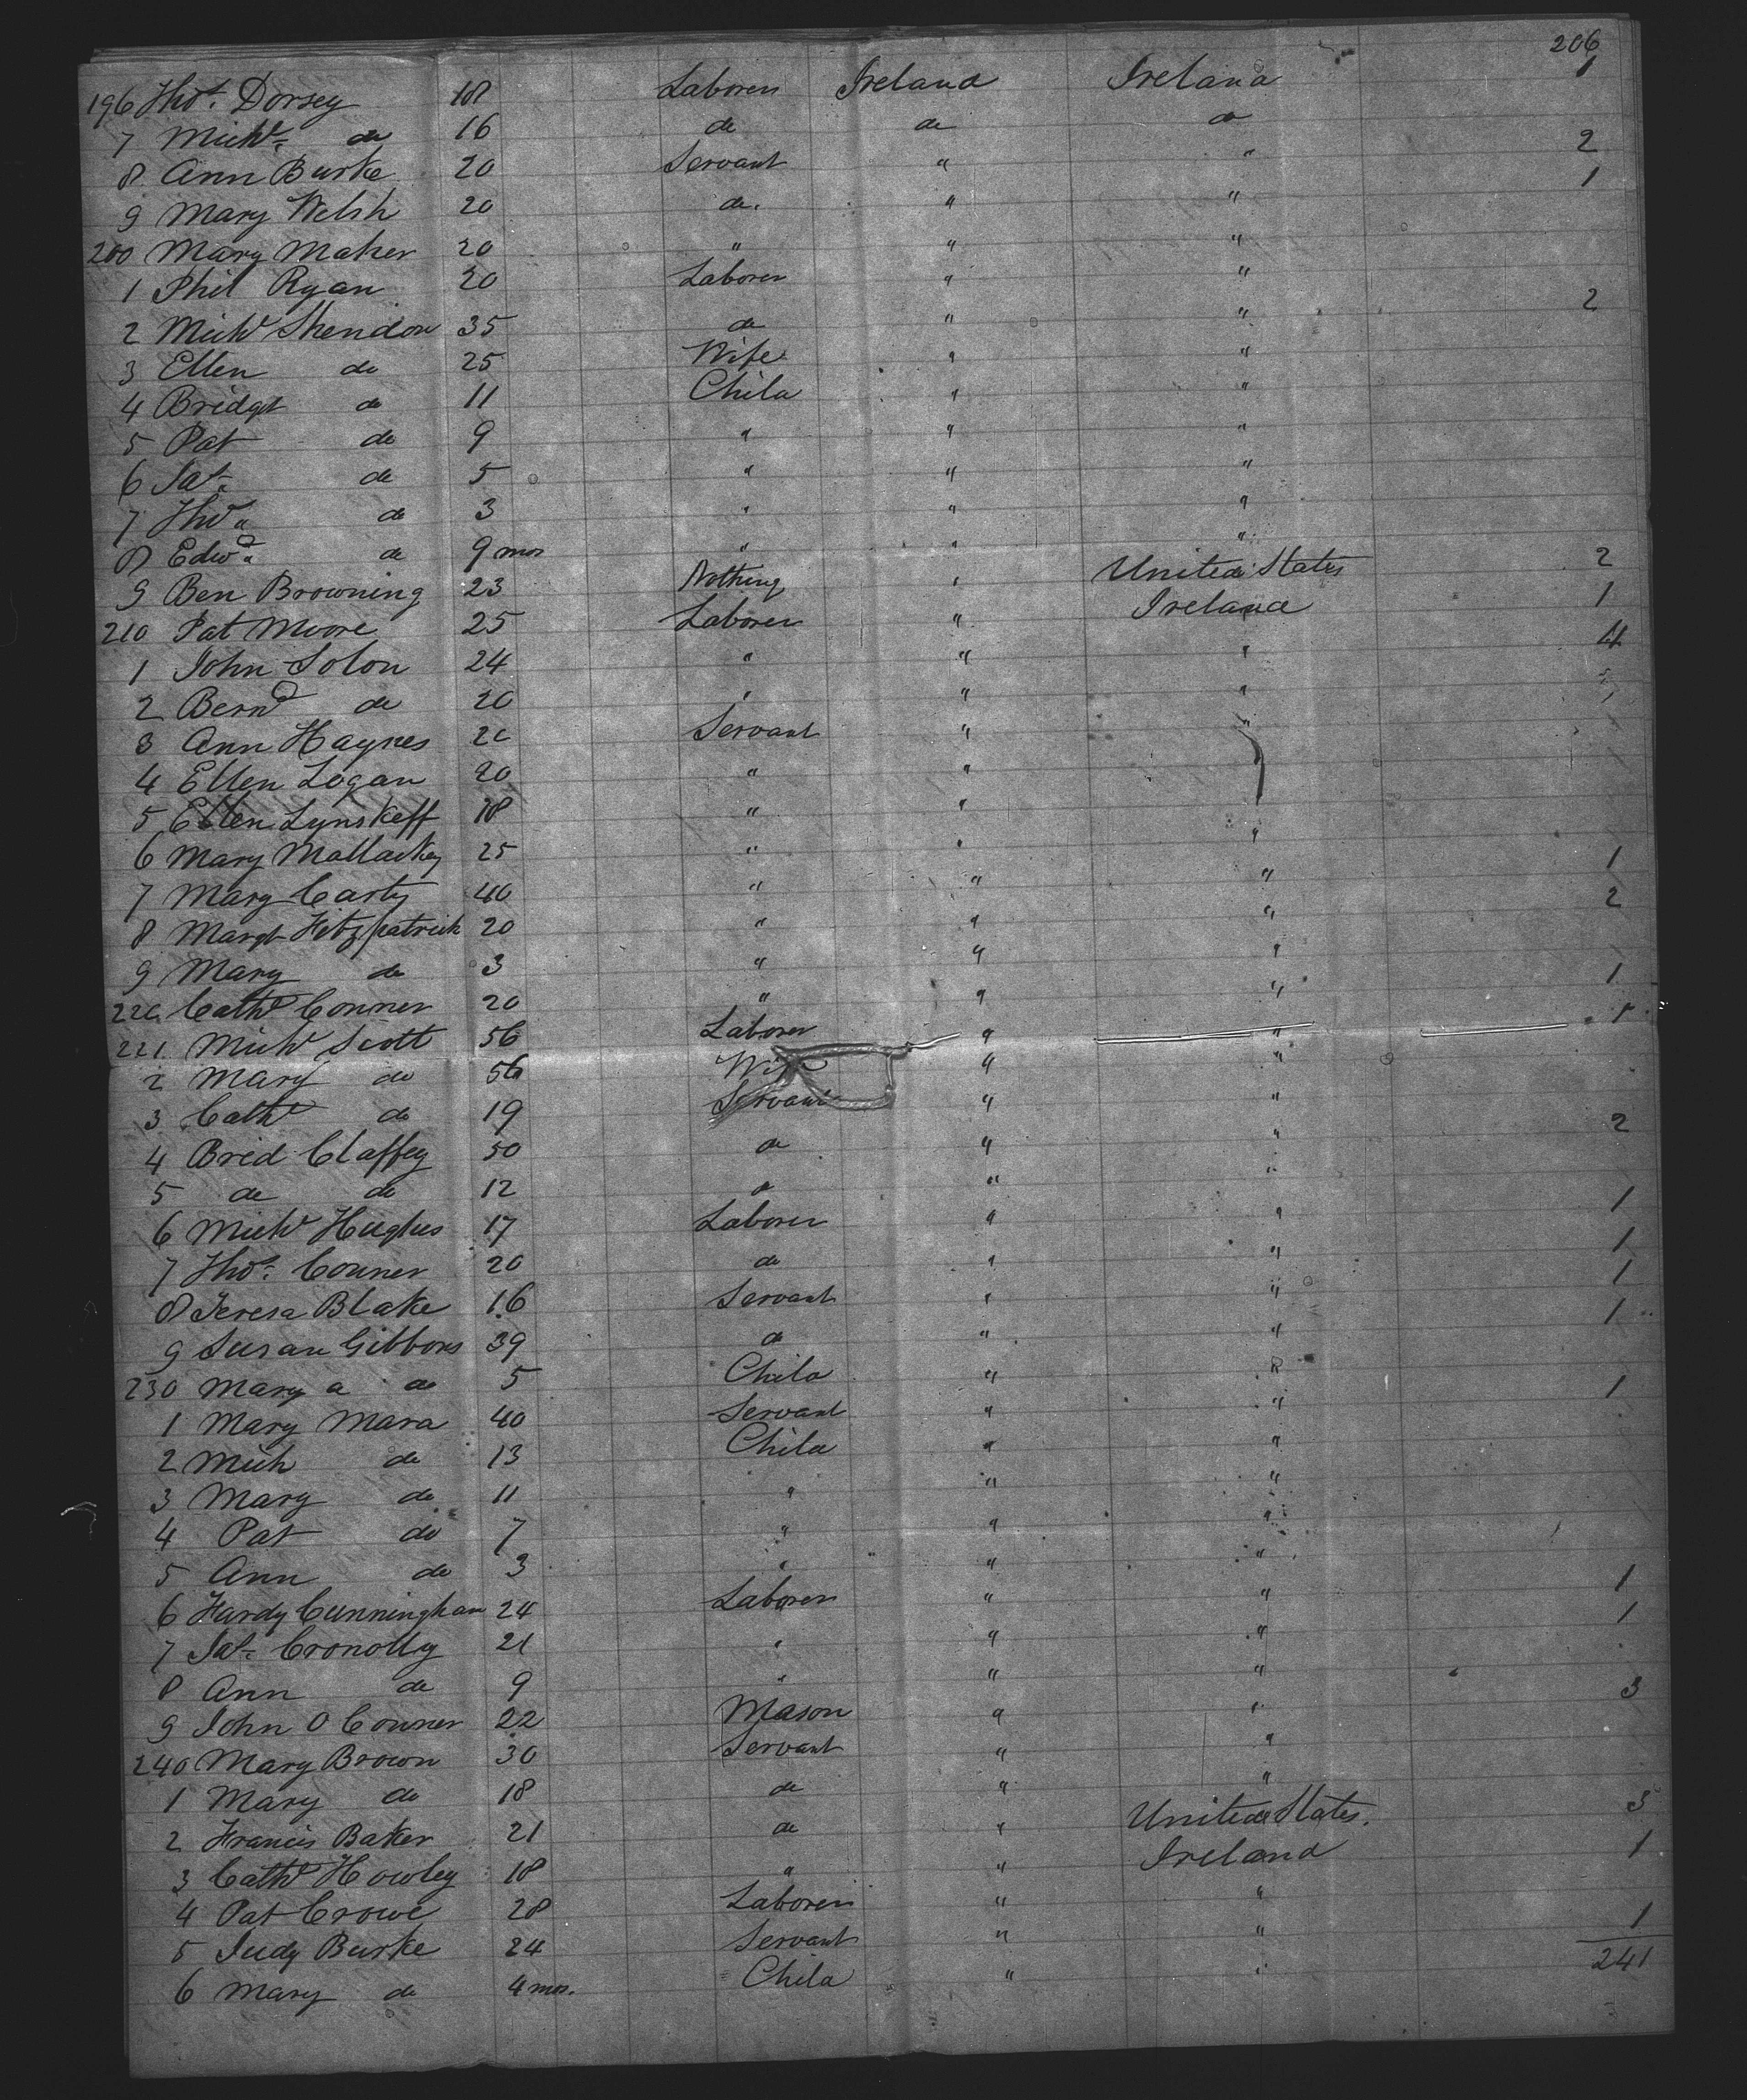 206
196 Thos. Dorsey 18 Laborer Ireland Ireland 1
7 Michl. do 16 do do do
8 Ann Burke 20 Servant " " 2
9 Mary Welsh 20 do. " " 1
200 Mary Maher 20 " " "
1 Phil Ryan 20 Laborer " "
2 Michl Shendon 35 do " " 2
3 Ellen do 25 Wife " "
4 Bridgt do 11 Child " "
5 Pat do 9 " " "
6 Jas. do 5 " " "
7 Thos. do 3 " " "
8 Edwd. do 9 mos " " "
9 Ben Browning 23 Nothing " United States 2
210 Pat Moore 25 Laborer " Ireland 1
1 John Solon 24 " " " 4
2 Bernd do 20 " " "
3 Ann Haynes 20 Servant " "
4 Ellen Logan 20 " " "
5 Ellen Lynskeff 18 " "
6 Mary Mallackey 25 " " "
7 Mary Carty 40 " " " 1
8 Margt Fitzpatrick 20 " " " 2
9 Mary do 3 " " "
220 Cathe Conner 20 " " " 1
221 Michl Scott 56 Laborer " " 1
2 Mary do 56 Wife " "
3 Cathe do 19 Servant " "
4 Brid Claffey 50 do " " 2
5 do do 12 do " "
6 Michl Hughes 17 Laborer " " 1
7 Thos. Conner 20 do " " 1
8 Teresa Blake 16 Servant " " 1
9 Susan Gibbons 39 do " " 1
230 Mary a do 5 Child " "
1 Mary Mara 40 Servant " " 1
2 Mich do 13 Child " "
3 Mary do 11 " " "
4 Pat do 7 " " "
5 Ann do 3 " " "
6 Hardy Cunningham 24 Laborer " " 1
7 Jas. Cronolly 21 " " " 1
8 Ann do 9 " " "
9 John O Conner 22 Mason " " 3
240 Mary Brown 30 Servant " "
1 Mary do 18 do " "
2 Francis Baker 21 do " United States. 3
3 Cathe Howley 18 " " Ireland 1
4 Pat Crowe 28 Laborer " "
5 Judy Burke 24 Servant " " 1
6 Mary do 4 mos. Child " " 241